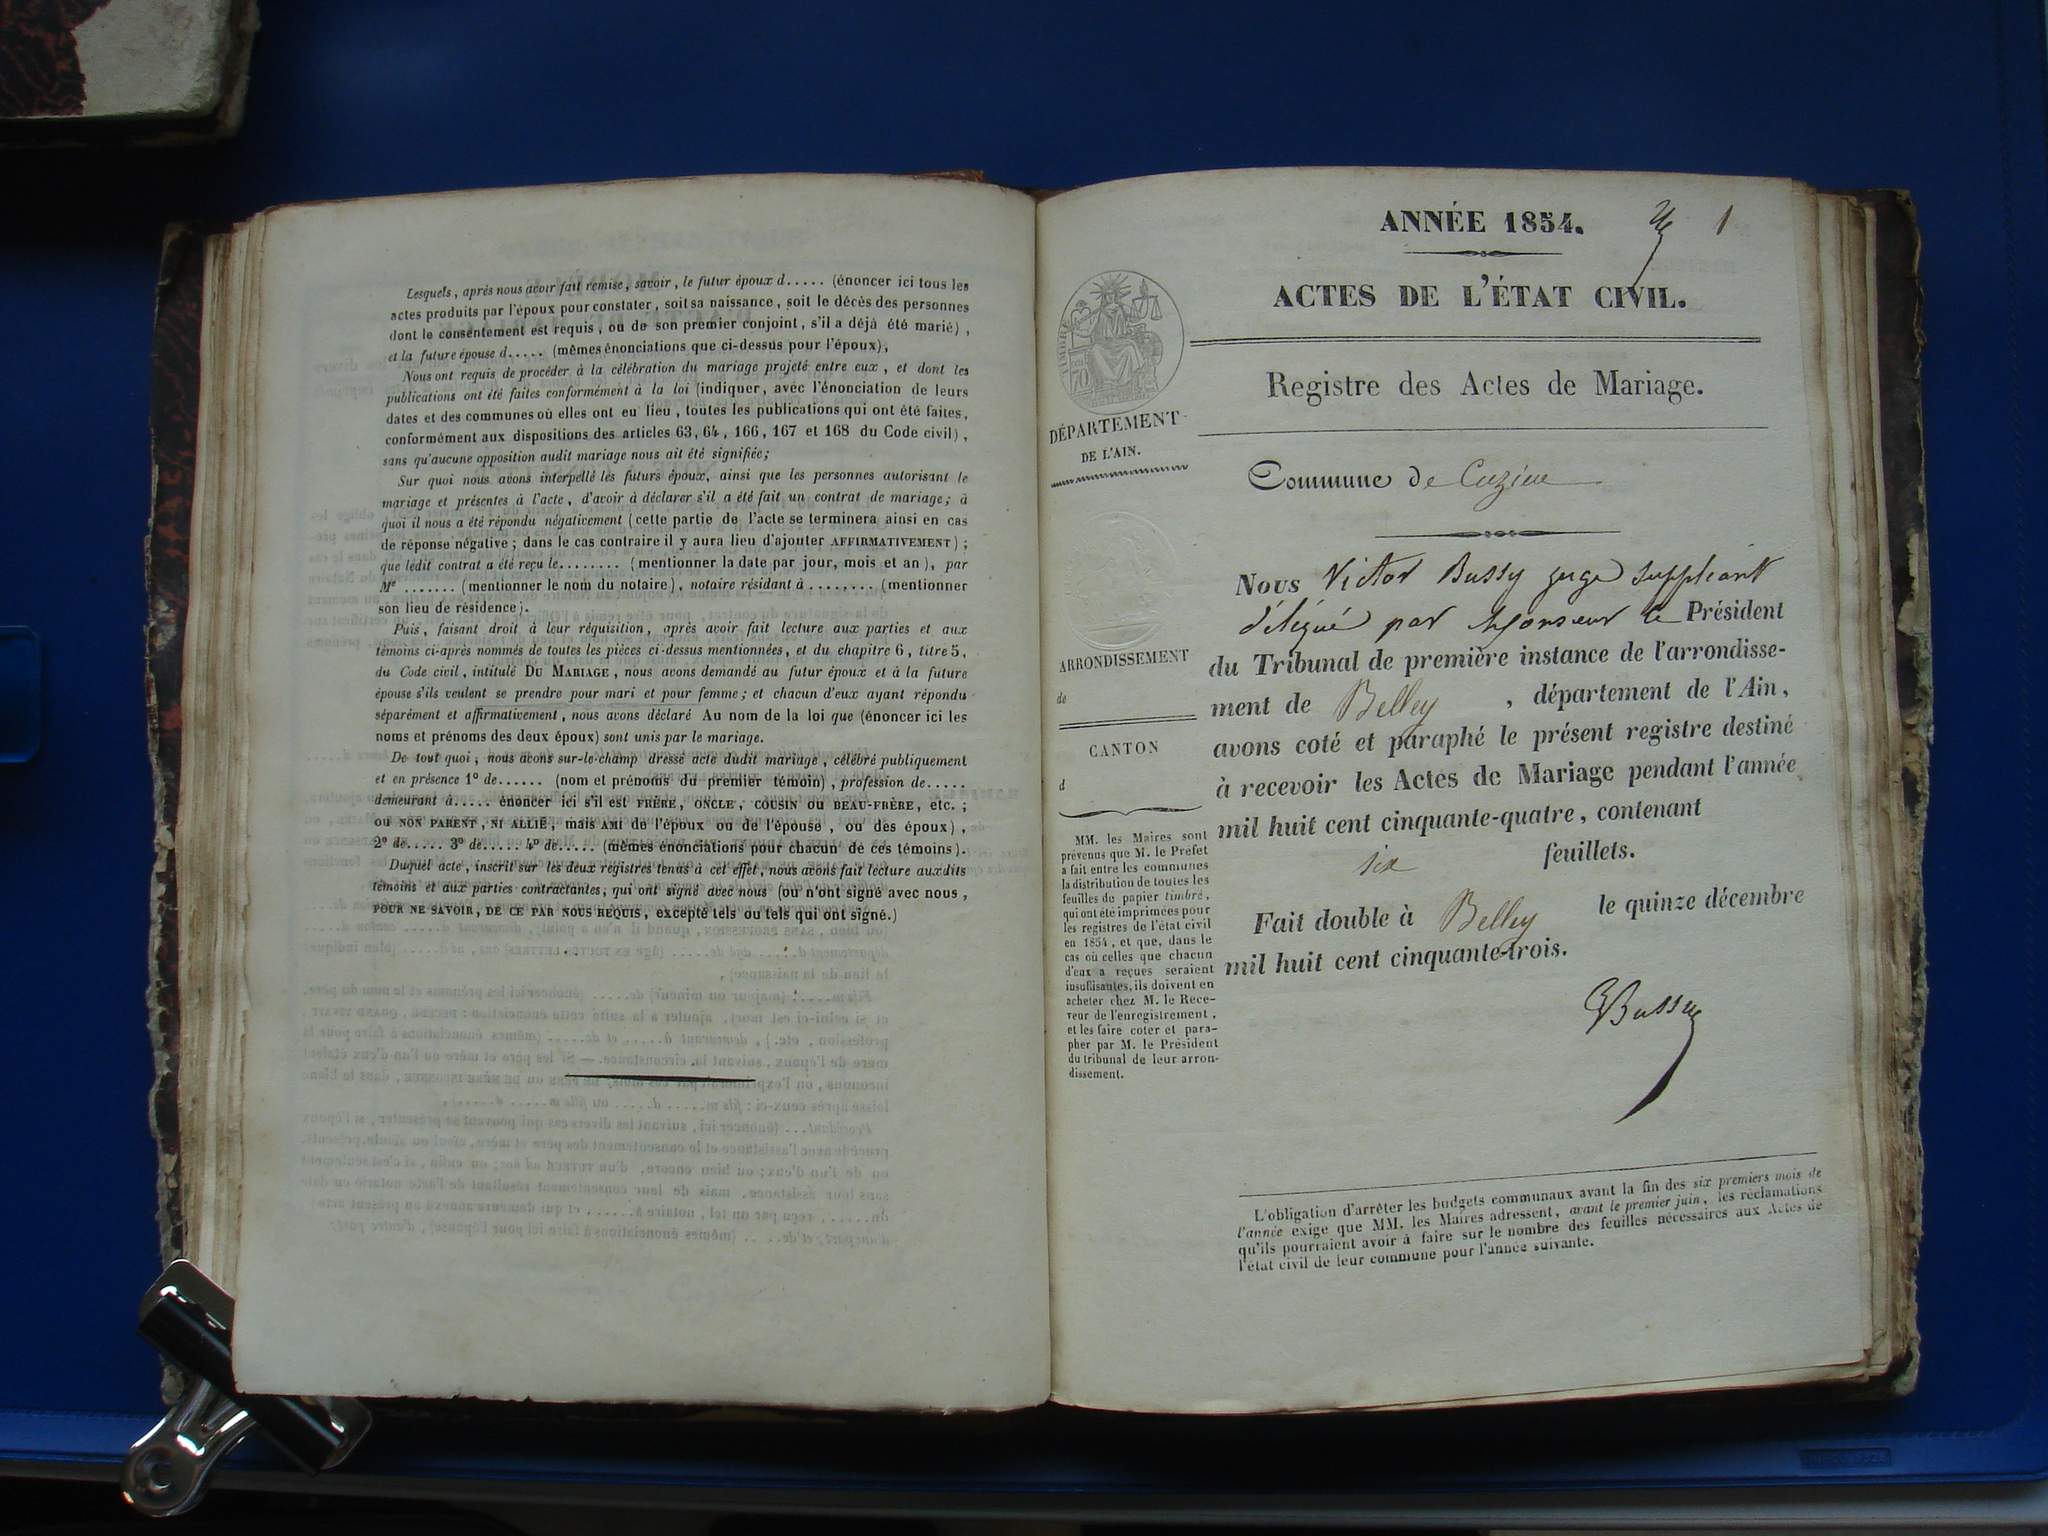 Lesquels, après nous avoir fait remise, savoir, le futur époux d..... (énoncer ici tous les
actes produits par l'époux pour constater, soit sa naissance, soit le décès des personnes
dont le consentement est requis, ou de son premier conjoint, s'il a déjà été marié),
et la future épouse d..... (mêmes énonciations que ci-dessus pour l'époux),
Nous ont requis de procéder à la célébration du mariage projeté entre eux, et dont les
publications ont été faites conformément à la loi (indiquer, avec l'énonciation de leurs
dates et des communes où elles ont eu lieu, toutes les publications qui ont été faites,
conformément aux dispositions des articles 63, 64, 166, 167 et 168 du Code civil),
sans qu'aucune opposition audit mariage nous ait été signifiée;
Sur quoi nous avons interpellé les futurs époux, ainsi que les personnes autorisant le
mariage et présentes à l'acte, d'avoir à déclarer s'il a été fait un contrat de mariage; à
quoi il nous a été répondu négativement (cette partie de l'acte se terminera ainsi en cas
de réponse négative; dans le cas contraire il y aura lieu d'ajouter AFFIRMATIVEMENT);
que ledit contrat a été reçu le........ (mentionner la date par jour, mois et an), par
Me ....... (mentionner le nom du notaire), notaire résidant à ........ (mentionner
son lieu de résidence).
Puis, faisant droit à leur réquisition, après avoir fait lecture aux parties et aux
témoins ci-après nommés de toutes les pièces ci-dessus mentionnées, et du chapitre 6, titre 5,
du Code civil, intitulé DU MARIAGE, nous avons demandé au futur époux et à la future
épouse s'ils veulent se prendre pour mari et pour femme; et chacun d'eux ayant répondu
séparément et affirmativement, nous avons déclaré Au nom de la loi que (énoncer ici les
noms et prénoms des deux époux) sont unis par le mariage.
De tout quoi, nous avons sur-le-champ dressé acte dudit mariage, célébré publiquement
et en présence 1° de...... (nom et prénoms du premier témoin), profession de.....
demeurant à..... énoncer ici s'il est FRÈRE, ONCLE, COUSIN OU BEAU-FRÈRE, etc.;
OU NON PARENT, NI ALLIÉ, mais AMI de l'époux ou de l'épouse, ou des époux),
2° de...... 3° de..... 4° de..... (mêmes énonciations pour chacun de ces témoins).
Duquel acte, inscrit sur les deux registres tenus à cet effet, nous avons fait lecture auxdits
témoins et aux parties contractantes; qui ont signé avec nous (ou n'ont signé avec nous,
POUR NE SAVOIR, DE CE PAR NOUS REQUIS, excepté tels ou tels qui ont signé.)
ANNÉE 1854. 1
ACTES DE L'ÉTAT CIVIL.
Registre des Actes de Mariage.
TIMBRE
70
DÉPARTEMENT
DE L'AIN.
Commune de Cuzieu
ARRONDISSEMENT
de
CANTON
d
MM. les Maires sont
prévenus que M. le Préfet
a fait entre les communes
la distribution de toutes les
feuilles de papier timbré,
qui ont été imprimées pour
les registres de l'état civil
en 1854, et que, dans le
cas où celles que chacun
d'eux a reçues seraient
insuffisantes, ils doivent en
acheter chez M. le Rece-
veur de l'enregistrement,
et les faire coter et para-
pher par M. le Président
du tribunal de leur arron-
dissement.
Nous Victor Bussy juge suppléant
délégué par Monsieur le Président
du Tribunal de première instance de l'arrondisse-
ment de Belley, département de l'Ain,
avons coté et paraphé le présent registre destiné
à recevoir les Actes de Mariage pendant l'année
mil huit cent cinquante-quatre, contenant
six feuillets.
Fait double à Belley le quinze décembre
mil huit cent cinquante-trois.
VBussy
L'obligation d'arrêter les budgets communaux avant la fin des six premiers mois de
l'année exige que MM. les Maires adressent, avant le premier juin, les réclamations
qu'ils pourraient avoir à faire sur le nombre des feuilles nécessaires aux Actes de
l'état civil de leur commune pour l'année suivante.